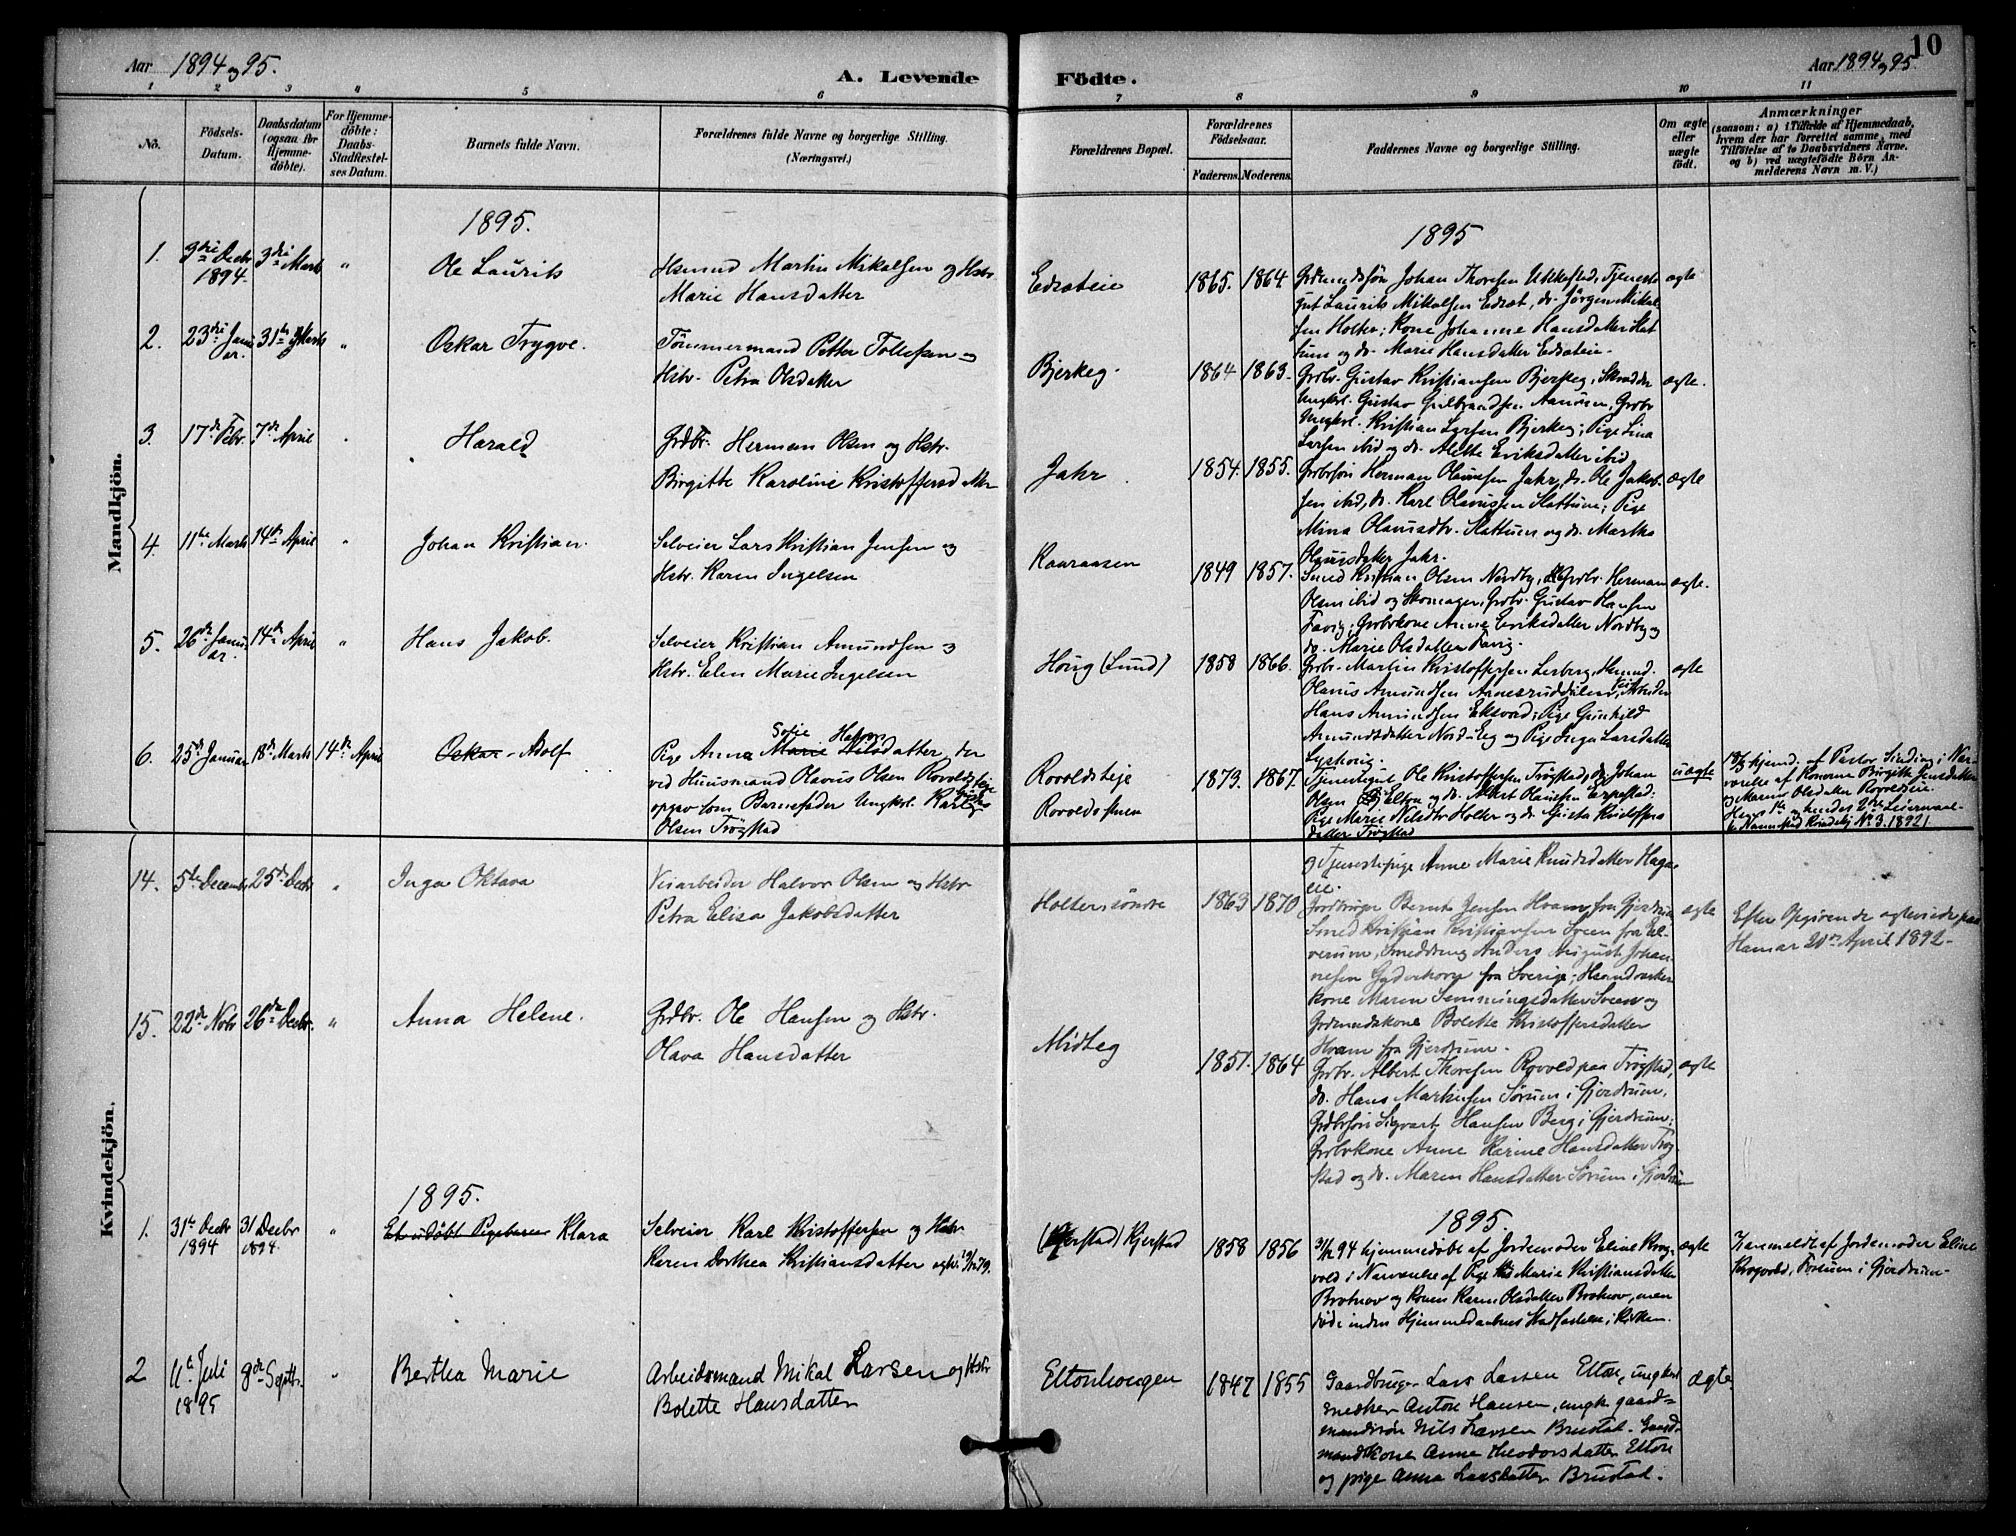 10
Aar 1894 og 95.
A. Levende Födte.
Aar 1894 og 95.
1 2 3 4 5 6 7 8 9 10 11
No.
Födsels-Datum.
Daabsdatum (ogsaa for Hjemmedöbte).
For Hjemmedöbte: Daabs-Stadfæstelses Datum.
Barnets fulde Navn.
Forældrenes fulde Navne og borgerlige Stilling. (Næringsvei.)
Forældrenes Bopæl.
Forældrenes Födselsaar.
Faderens. Moderens.
Faddernes Navne og borgerlige Stilling.
Om ægte eller uægte födt.
Anmærkninger
(saasom: a) i Tilfælde af Hjemmedaab,
hvem der har forrettet samme, med
Tilföielse af to Daabsvidners Navne,
og b) ved uægtefödte Börn Anmelderens Navn m. V.)
Mandkjön.
1895.
1895
1. 9de Decbr 1894. 3die Marts "
Ole Laurits
Hsmnd Martin Mikalsen og Hstr
Marie Hansdatter
Edsateie
1865. 1864
Grdmandssön Johan Thoresen Ukkestad, Tjeneste
gut Laurits Mikalsen Edsæt, do. Jörgen Mikal
sen Holter; Kone Johanne Hansdatter Slat
tum og do. Marie Hansdatter Edsateie.
ægte
2. 23de Januar. 31te Marts "
Oskar Trygve.
Tömmermand Petter Tollefsen og
Hstr. Petra Olsdatter
Bjerkeg.
1864 1863.
Grdbr. Gustav Kristiansen Bjerkeg, Skrædder
Ungkrl. Gustav Gulbrandsen Aamum, Grdbr
Ungkrl. Kristian Larsen Bjerkeg; Pige Lina
Larsen ibid og do. Alette Eriksdatter ibid
ægte.
3. 17de Febr. 7de April "
Harald
Grdbr. Herman Olsen og Hstr.
Birgitte Karoline Kristoffersdatter
Jahr
1854. 1855.
Grdbrsön Herman Olausen Jahr, do. Ole Jakob-
sen ibid, do. Karl Olausen Slattum; Pige
Mina Olausdtr. Slattum og do. Martha
Olausdatter Jahr.
ægte
4 11te Marts 14de April "
Johan Kristian.
Selveier Lars Kristian Jensen og
Hstr. Karen Ingelsen
Kauraasen
1849 1857.
Smed Kristian Olsen Nordby, Grdbr. Herman
Olsen ibid og Skomager, Grdbr. Gustav Hansen
Favig; Grdbrkone Anne Eriksdatter Nordby og
do. Marie Olsdatter Favig.
ægte.
5. 26de Januar. 14de April "
Hans Jakob.
Selveier Kristian Amundsen og
Hstr. Elen Marie Ingelsen
Houg (Lund)
1858 1866.
Grdbr. Martin Kristoffersen Lerberg, Hsmnd.
Olaus Amundsen Arnesruddalen, Veiarbeider
Hans Amundsen Eksvad; Pige Gunhild
Amundsdatter Nord-Eeg og Pige Inga Larsdatter
Lyshoug.
ægte
6. 25de Januar 18de Marts 14de April
Oskar Adolf
Pige Anna Marie Sofie Nilsdatter Halvor, der
ved Huusmand Olavus Olsen Rovoldsteje
opgav som Barnefader Ungkrl. Karl
Olsen Trögstad
Rovoldsteje
Rovoldsteien
1873. 1867.
Tjenestegut Ole Kristoffersen Trögstad, do. Johan
Olsen Elton og do. Albert Olausen Erpestad;
Pige Marie Nilsdtr Holter og do. Gusta Kristoffers
datter Trögstad
uægte
18/3 hjemd. af Pastor Sinding i Nær-
værelse af Konerne Birgitte Jensdatter
og Maren Olsdatter Rovoldseie.
Hans 1ste og hendes 2det Leiermaal.
Kvindekj No 3. 1892.
Kvindekjön.
14. 5te December 25de Decbr "
Inga Oktava
Veiarbeider Halvor Olsen og Hstr
Petra Elisa Jakobsdatter
Holter söndre
1863 1870
Tjenestepige Anne Marie Knudsdatter Haga
eie.
Jordbruger Bernt Jensen Hvam fra Gjerdrum
Smed Kristian Kristiansen Sveen fra El-
verum, Smeddreng Anders August Johan-
nesen fra Sverige; Haandværker
kone Maren Semmingsdatter Sveen og
Grdmandskone Bolette Kristoffersdatter
Hvam fra Gjerdrum.
ægte
Efter Opgivende ægteviede paa
Hamar 20de April 1892.
15. 22de Novbr 26de Decbr. "
Anna Helene.
Grdbr. Ole Hansen og Hstr.
Olava Hansdatter
Midteg
1851. 1864
Grdbr. Albert Thoresen Rovold paa Trögstad,
do. Hans Martinsen Sörum i Gjerdrum,
Grdbrsön Sigvart Hansen Berg i Gjerdrum;
Grdbrkone Anne Karine Hansdatter Trög
stad og do. Maren Hansdatter Sörum i Gjerdrum
ægte
1895.
1895.
1. 31te Decbr 1894 31 Decbr 1894. "
Et udöbt Pigebarn Klara
Selveier Karl Kristoffersen og Hstr
Karen Dorthea Kristiansdatter
Kjerstad
1858 1856
31/12 94 hjemmedöbt af Jordemoder Eline Krog-
vold i Nærværelse af Pige Marie Kristiansdatter
Brotnov og Konen Karen Olsdatter Brotnov, men
döde inden Hjemmedaabens Stadfæstelse i Kirken.
ægte
Anmeldt af Jordemoder Eline
Krogvold, Fossum i Gjerdrum.
2 11te Juli 1895 8de Septbr. "
Bertha Marie
Arbeidsmand Mikal Larsen og Hstr
Bolette Hansdatter
Eltonhougen
1847 1855
Gaardbruger Lars Larsen Elton, ungkarl
snedker Anton Hansen, ungk. gaard-
mandssön Nils Larsen Brustad. Gaard-
mandskone Anne Theodorsdatter Elton
og pige Anna Larsdatter Brustad.
ægte.